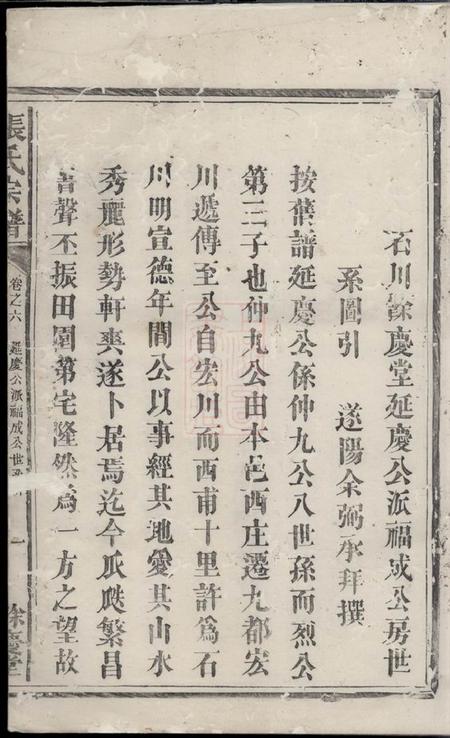 石川餘慶堂延慶公派福成公房世
系圖引　遂陽余弼承拜撰
按舊譜延慶公係仲九公八世孫而烈公
第三子也仲九公由本邑西庄遷九都宏
川遞傳至公自宏川而西甫十里許為石
川明宣德年間公以事經其地愛其山水
秀麗形勢軒爽遂卜居焉迄今瓜瓞繁昌
書聲丕振田園第宅隆然為一方之望故
張氏宗譜
卷之六　延慶公派福成公世系
一
餘慶堂